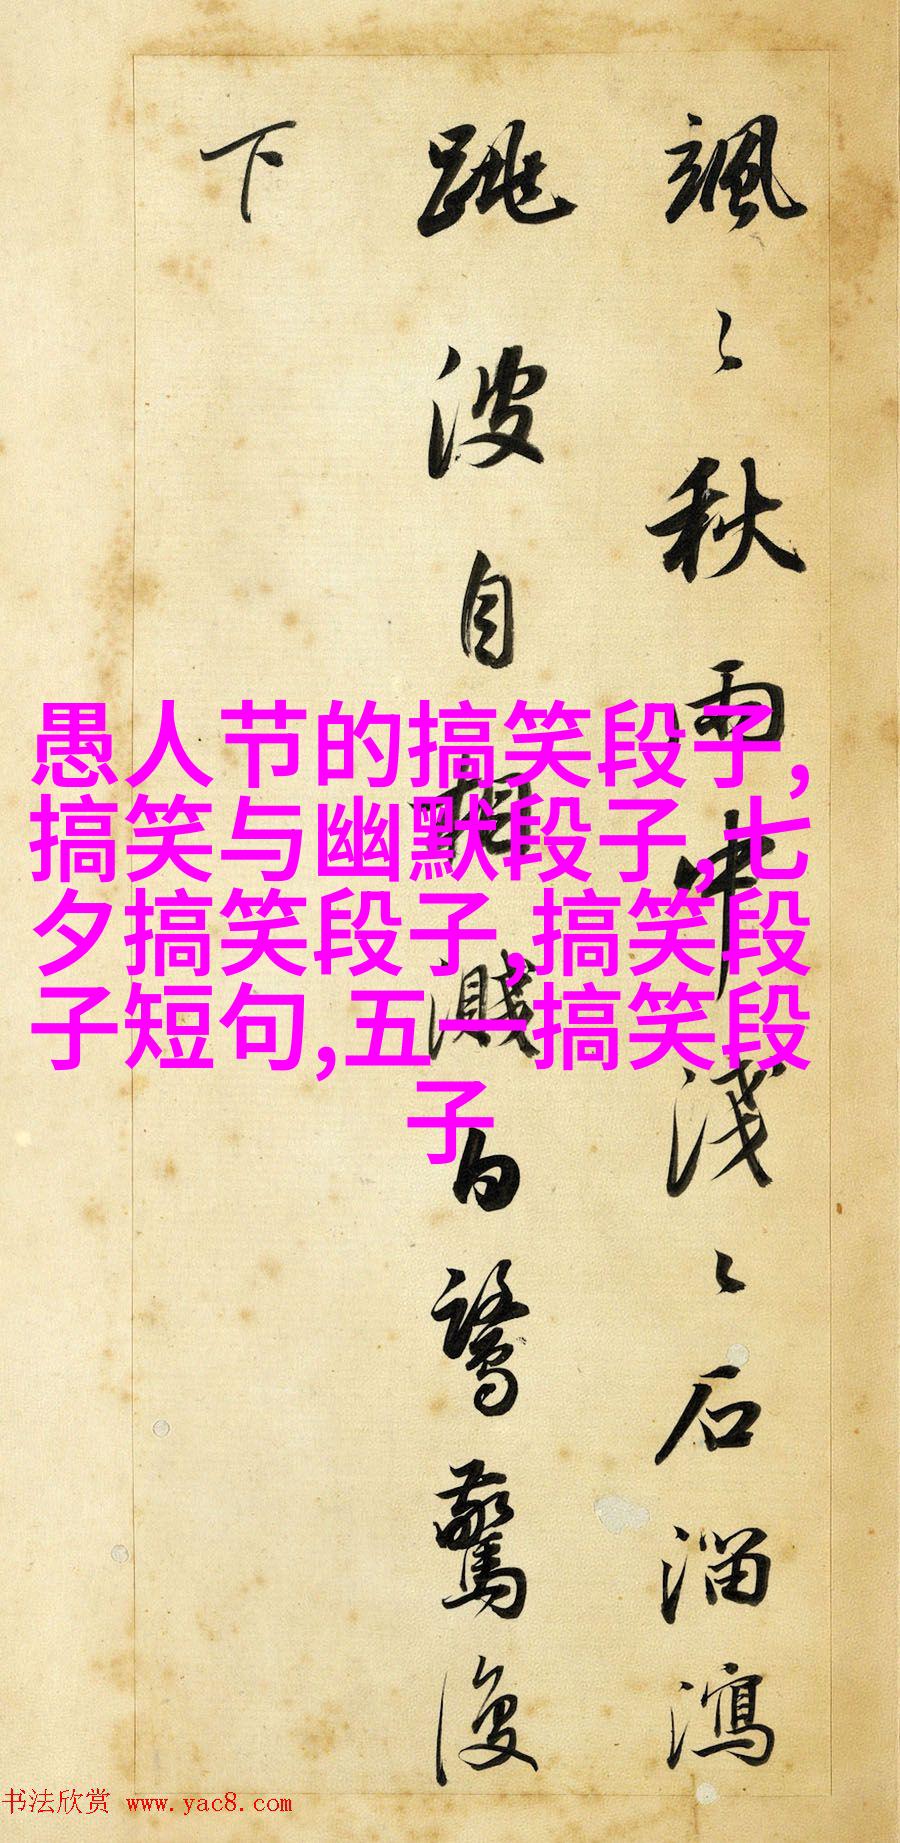 飒〻秋雨中浅〻石溜泻
跳波自相溅白鹭惊复
下
愚人节的搞笑段子,
搞笑与幽默段子,七
夕搞笑段子,搞笑段
子短句,五一搞笑段
子
书法欣赏 www.yac8.com